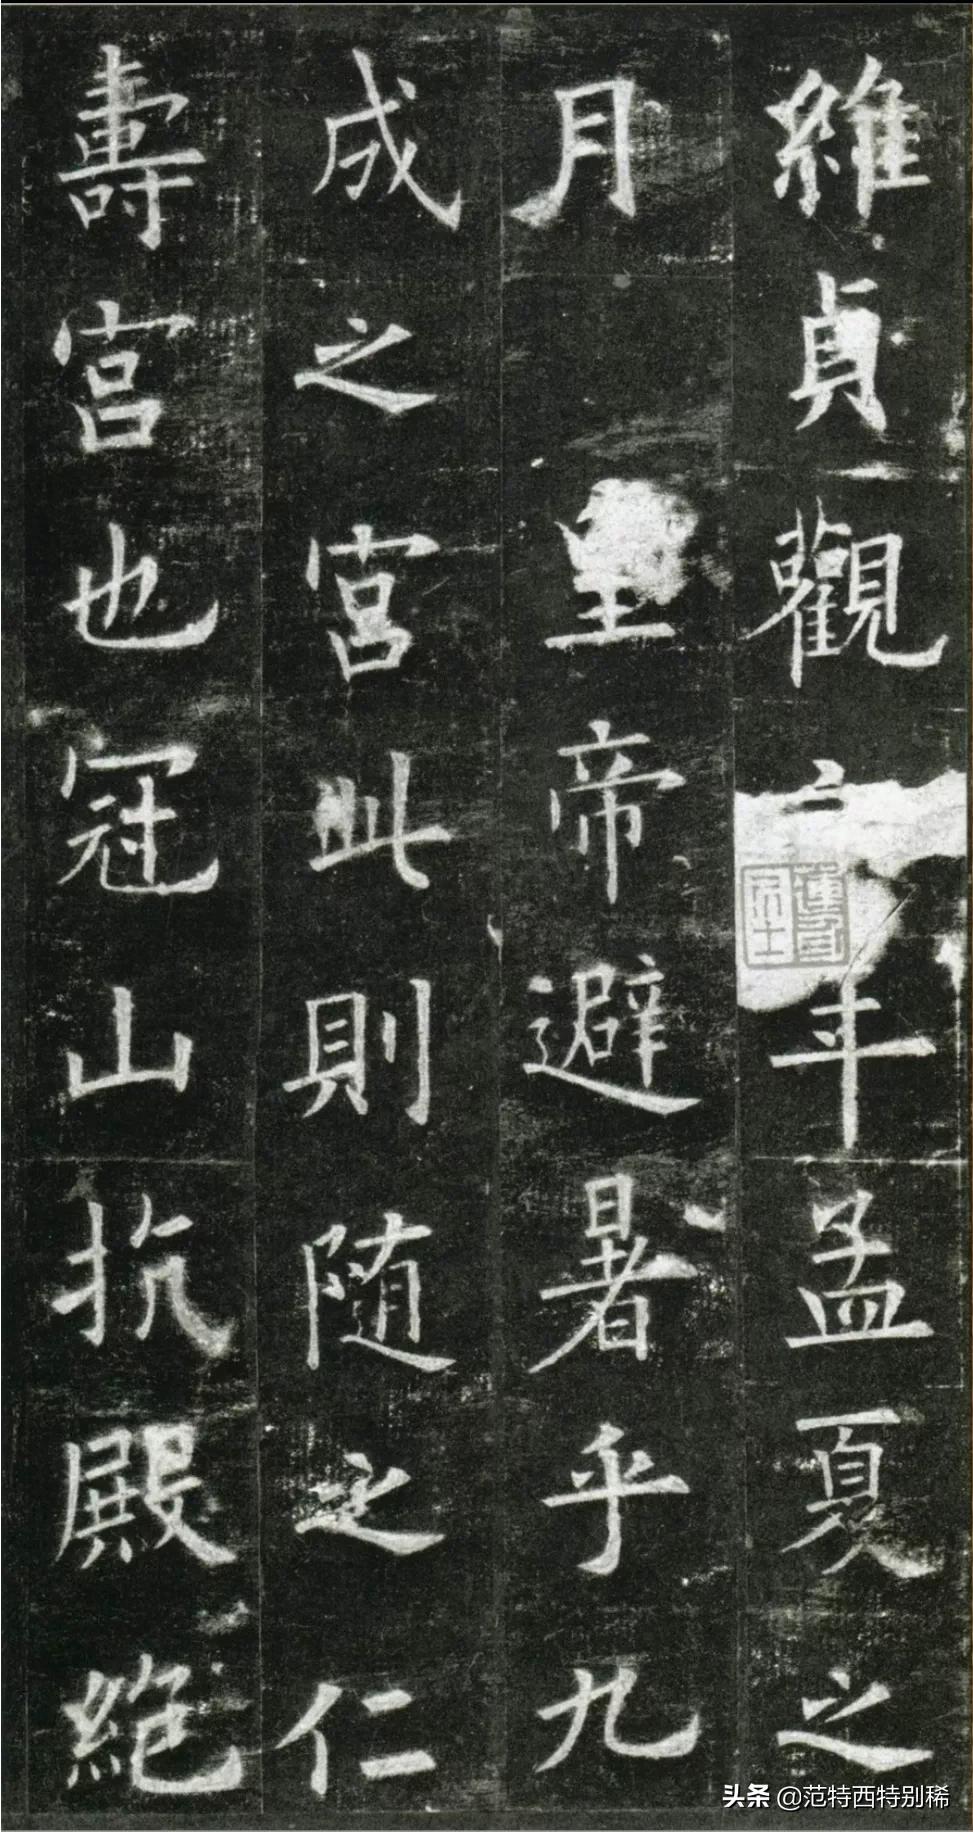 維貞觀六年孟夏之
月 皇帝避暑乎九
成之宮此則随之仁
壽宮也冠山抗殿絶
头条 @范特西特别稀